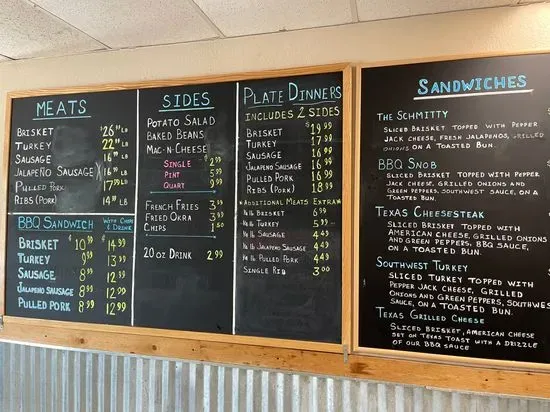 MEATS
BRISKET $26 99 LB
TURKEY 22 99 LB
SAUSAGE 16 99 LB
JALAPEÑO SAUSAGE 16 99 LB
PULLED PORK 17 99 LB
RIBS (PORK) 14 99 LB
BBQ SANDWICH WITH CHIPS & DRINK
BRISKET $10 99 $14 99
TURKEY 9 99 13 99
SAUSAGE 8 99 12 99
JALAPEÑO SAUSAGE 8 99 12 99
PULLED PORK 8 99 12 99
SIDES
POTATO SALAD
BAKED BEANS
MAC-N-CHEESE
SINGLE $2 99
PINT 5 99
QUART 9 99
FRENCH FRIES 3 99
FRIED OKRA 3 99
CHIPS 1 50
20 OZ DRINK 2 99
PLATE DINNERS
INCLUDES 2 SIDES
BRISKET $19 99
TURKEY 17 99
SAUSAGE 16 99
JALAPEÑO SAUSAGE 16 99
PULLED PORK 16 99
RIBS (PORK) 18 99
ADDITIONAL MEATS EXTRA
¼ LB BRISKET 6 99
¼ LB TURKEY 5 99
¼ LB SAUSAGE 4 99
¼ LB JALAPEÑO SAUSAGE 4 99
¼ LB PULLED PORK 4 99
SINGLE RIB 3 00
SANDWICHES
THE SCHMITTY
SLICED BRISKET TOPPED WITH PEPPER
JACK CHEESE, FRESH JALAPENOS, GRILLED
ONIONS ON A TOASTED BUN.
BBQ SNOB
SLICED BRISKET TOPPED WITH PEPPER
JACK CHEESE, GRILLED ONIONS AND
GREEN PEPPERS, SOUTHWEST SAUCE, ON A
TOASTED BUN.
TEXAS CHEESESTEAK
SLICED BRISKET TOPPED WITH
AMERICAN CHEESE, GRILLED ONIONS
AND GREEN PEPPERS, BBQ SAUCE,
ON A TOASTED BUN.
SOUTHWEST TURKEY
SLICED TURKEY TOPPED WITH
PEPPER JACK CHEESE, GRILLED
ONIONS AND GREEN PEPPERS, SOUTHWEST
SAUCE, ON A TOASTED BUN.
TEXAS GRILLED CHEESE
SLICED BRISKET, AMERICAN CHEESE
SET ON TEXAS TOAST WITH A DRIZZLE
OF OUR BBQ SAUCE